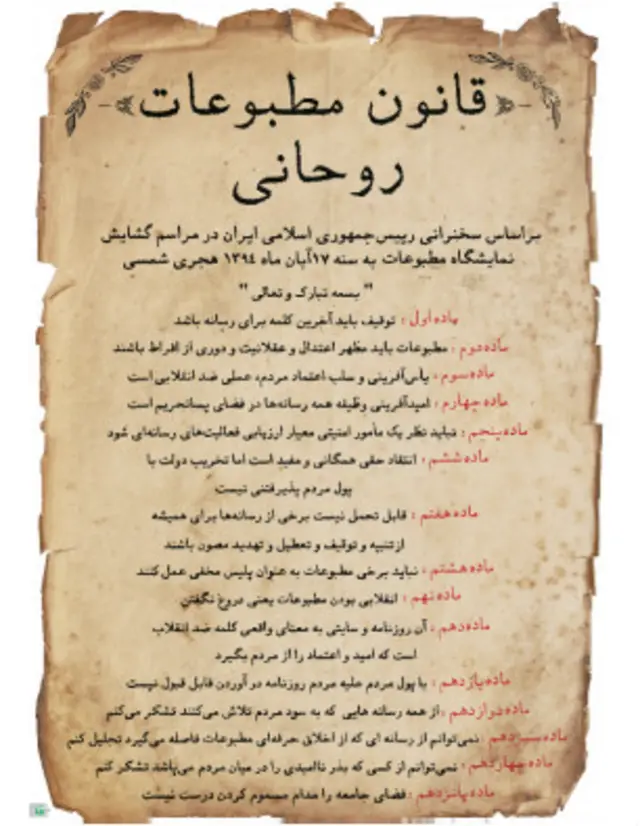 قانون مطبوعات
روحانی
براساس سخنرانی رییس‌جمهوری اسلامی ایران در مراسم گشایش
نمایشگاه مطبوعات به سنه ۱۷آبان ماه ۱۳۹٤ هجری شمسی
" بسمه تبارک و تعالی "
ماده اول : توقیف باید آخرین کلمه برای رسانه باشد
ماده دوم : مطبوعات باید مظهر اعتدال و عقلانیت و دوری از افراط باشند
ماده سوم : یاس‌آفرینی و سلب اعتماد مردم، عملی ضد انقلابی است
ماده چهارم : امیدآفرینی وظیفه همه رسانه‌ها در فضای پساتحریم است
ماده پنجم : نباید نظر یک مأمور امنیتی معیار ارزیابی فعالیت‌های رسانه‌ای شود
ماده ششم : انتقاد حقی همگانی و مفید است اما تخریب دولت با
پول مردم پذیرفتنی نیست
ماده هفتم : قابل تحمل نیست برخی از رسانه‌ها برای همیشه
از تنبیه و توقیف و تعطیل و تهدید مصون باشند
ماده هشتم : نباید برخی مطبوعات به عنوان پلیس مخفی عمل کنند
ماده نهم : انقلابی بودن مطبوعات یعنی دروغ نگفتن
ماده دهم : آن روزنامه و سایتی به معنای واقعی کلمه ضد انقلاب
است که امید و اعتماد را از مردم بگیرد
ماده یازدهم : با پول مردم علیه مردم روزنامه در آوردن قابل قبول نیست
ماده دوازدهم : از همه رسانه هایی که به سود مردم تلاش می‌کنند تشکر می‌کنم
ماده سیزدهم : نمی‌توانم از رسانه ای که از اخلاق حرفه‌ای مطبوعات فاصله می‌گیرد تجلیل کنم
ماده چهاردهم : نمی‌توانم از کسی که بذر ناامیدی را در میان مردم می‌پاشد تشکر کنم
ماده پانزدهم : فضای جامعه را مدام مسموم کردن درست نیست